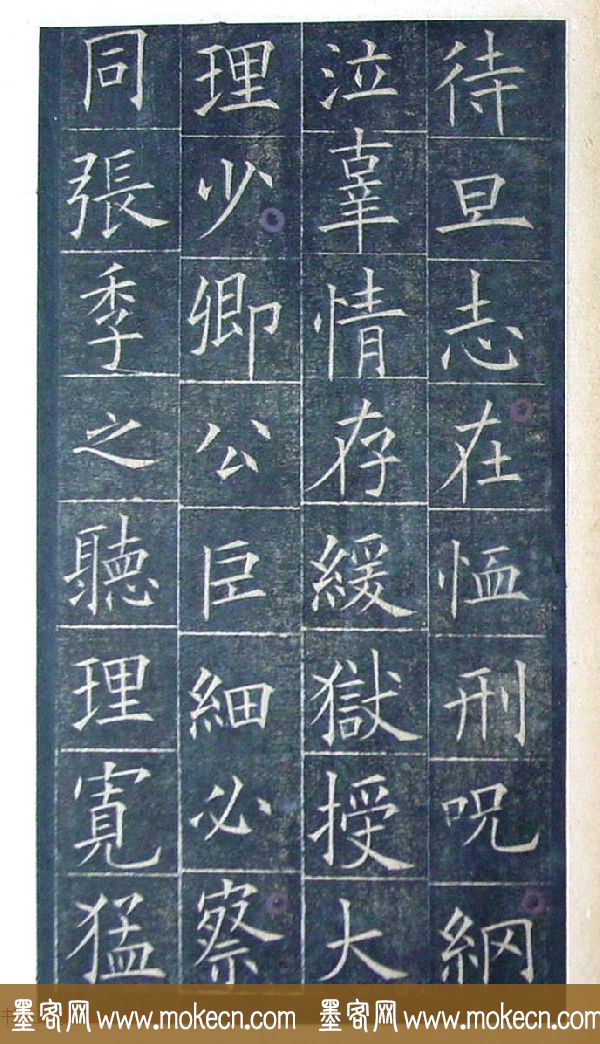 待旦志在恤刑呪網
泣辜情存緩獄授大
理少卿公巨細必察
同張季之聽理寬猛
墨客网 www.mokecn.com 墨客网 www.mokecn.com